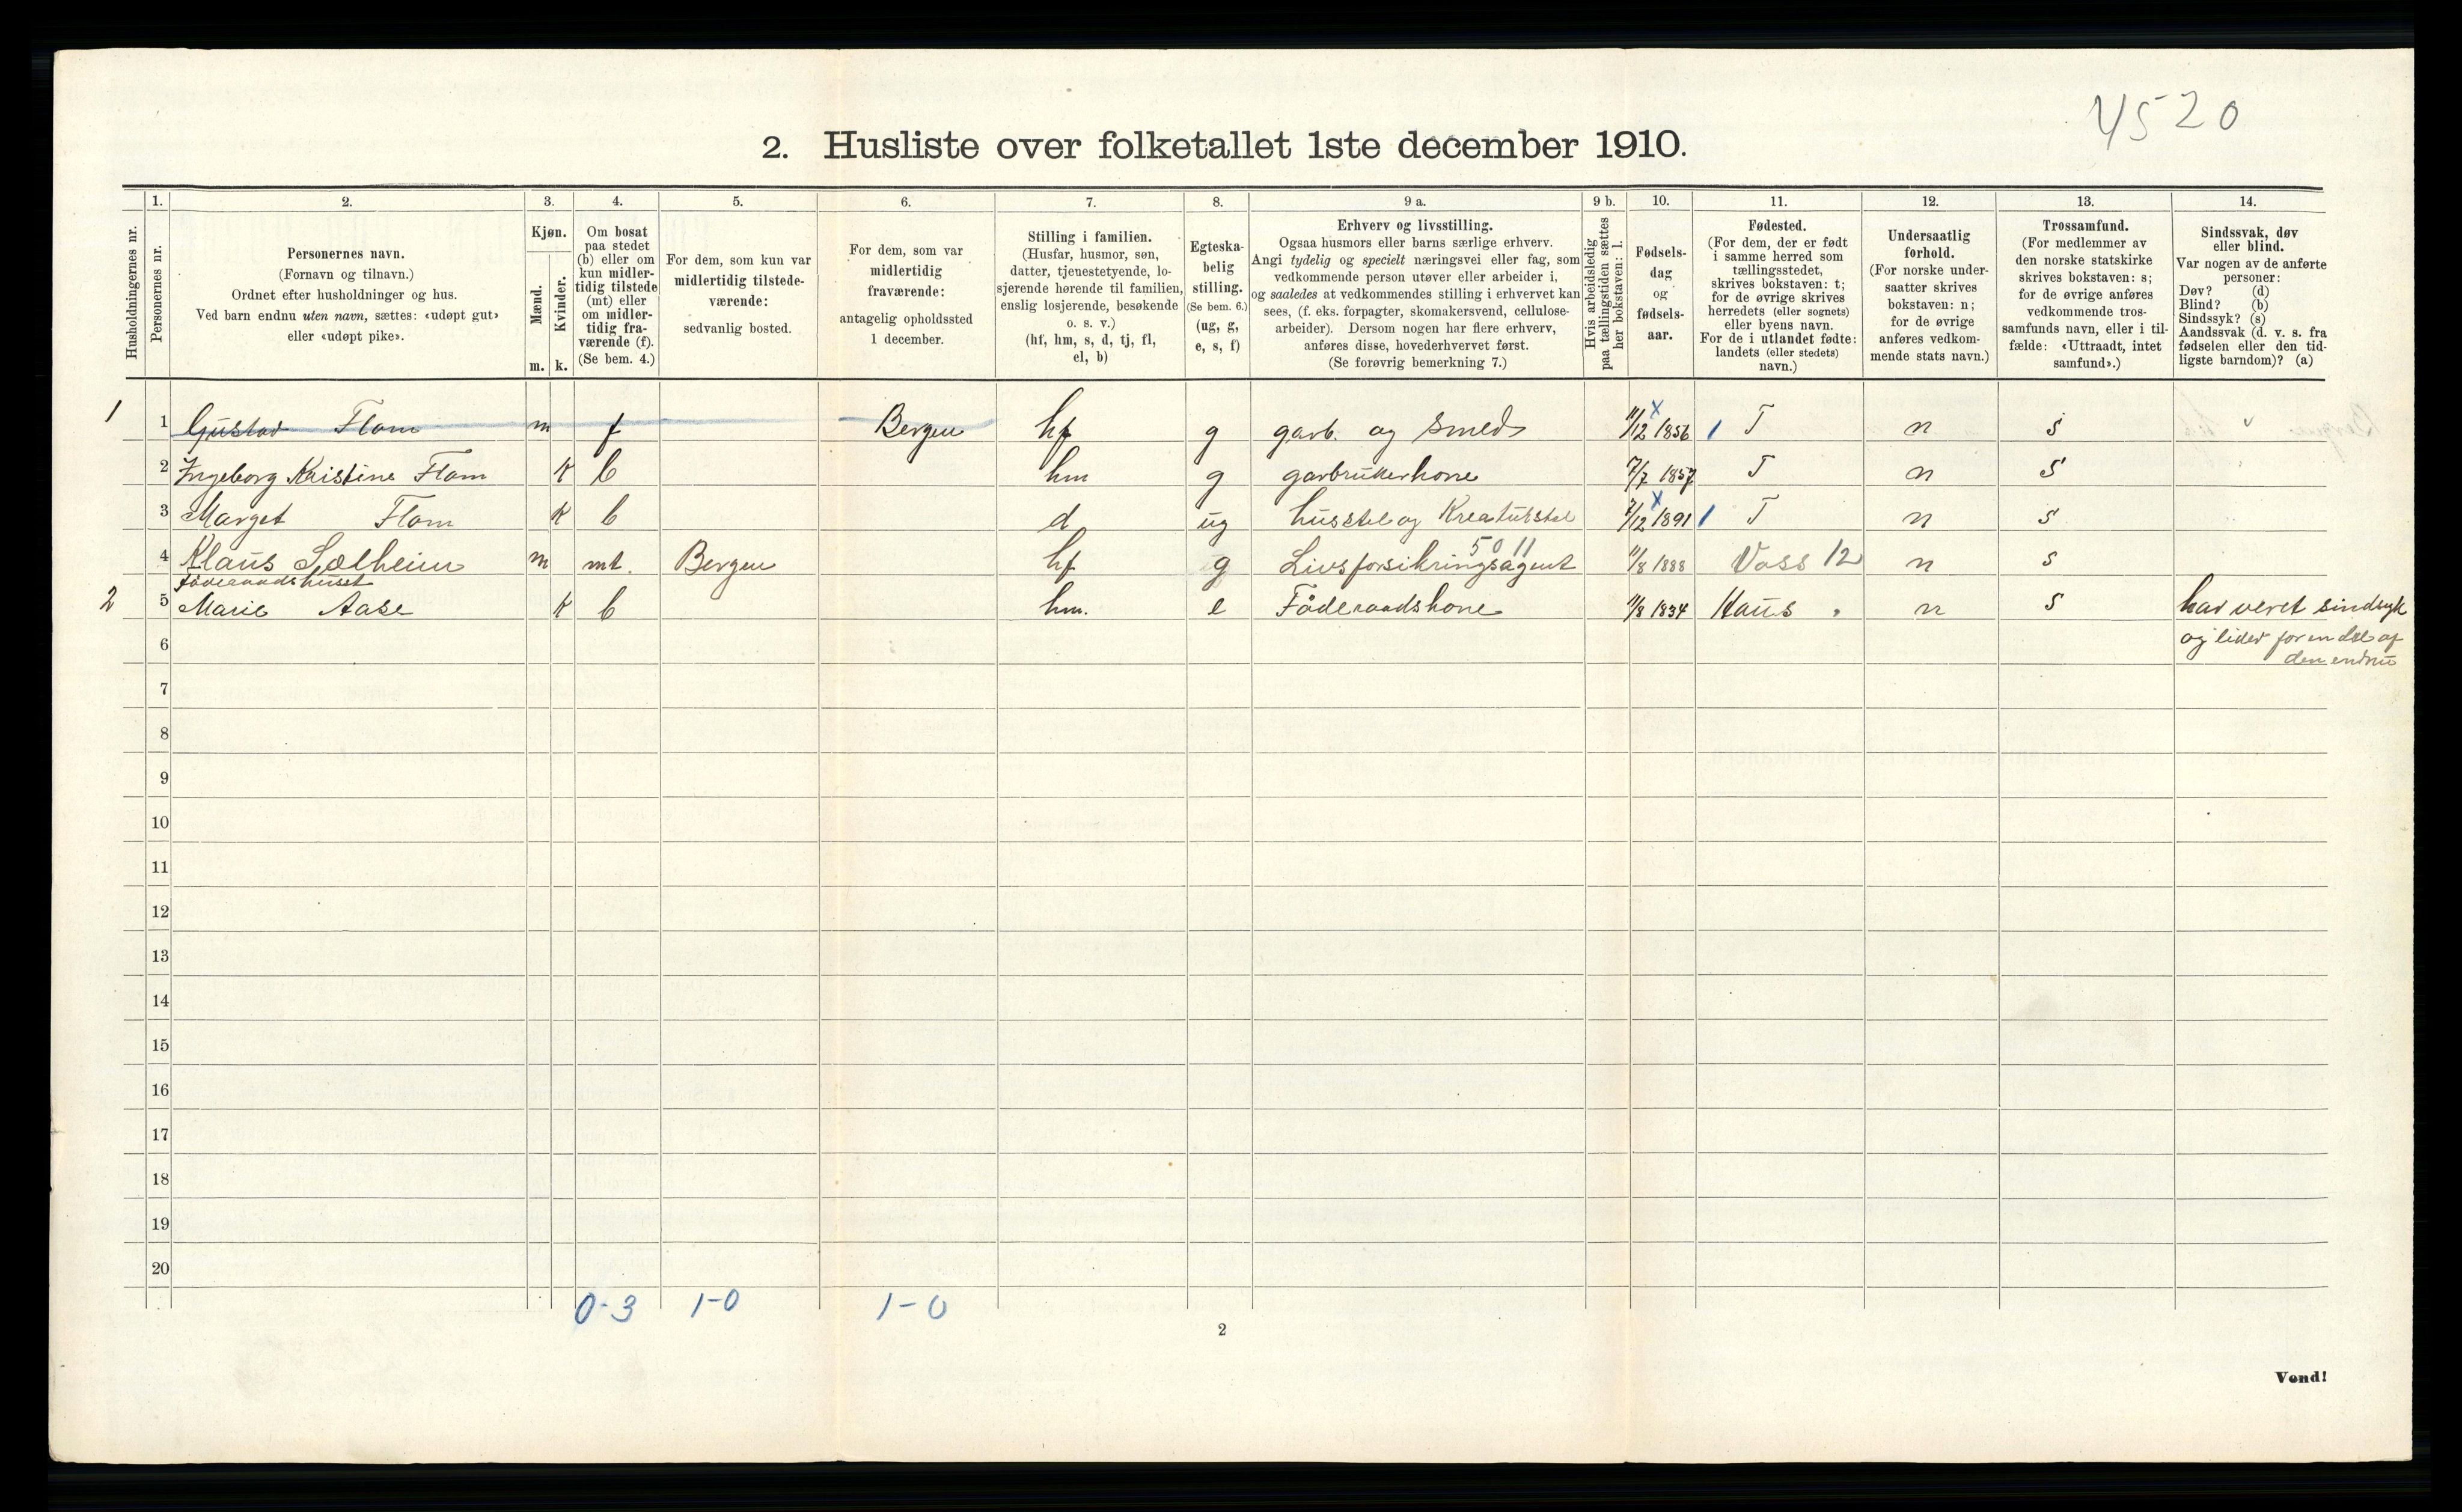 4520
2. Husliste over folketallet 1ste december 1910.
Husholdningernes nr.
1.
Personernes nr.
2.
Personernes navn.
(Fornavn og tilnavn.)
Ordnet efter husholdninger og hus.
Ved barn endnu uten navn, sættes: «udøpt gut»
eller «udøpt pike».
3.
Kjøn.
Mænd.
Kvinder.
m. k.
4.
Om bosat
paa stedet
(b) eller om
kun midler-
tidig tilstede
(mt) eller
om midler-
tidig fra-
værende (f).
(Se bem. 4.)
5.
For dem, som kun var
midlertidig tilstede-
værende:
sedvanlig bosted.
6.
For dem, som var
midlertidig
fraværende:
antagelig opholdssted
1 december.
7.
Stilling i familien.
(Husfar, husmor, søn,
datter, tjenestetyende, lo-
sjerende hørende til familien,
enslig losjerende, besøkende
o. s. v.)
(hf, hm, s, d, tj, fl,
el, b)
8.
Egteska-
belig
stilling.
(Se bem. 6.)
(ug, g,
e, s, f)
9 a.
Erhverv og livsstilling.
Ogsaa husmors eller barns særlige erhverv.
Angi tydelig og specielt næringsvei eller fag, som
vedkommende person utøver eller arbeider i,
og saaledes at vedkommendes stilling i erhvervet kan
sees, (f. eks. forpagter, skomakersvend, cellulose-
arbeider). Dersom nogen har flere erhverv,
anføres disse, hovederhvervet først.
(Se forøvrig bemerkning 7.)
9 b.
Hvis arbeidsledig
paa tællingstiden sættes
her bokstaven: l.
10.
Fødsels-
dag
og
fødsels-
aar.
11.
Fødested.
(For dem, der er født
i samme herred som
tællingsstedet,
skrives bokstaven: t;
for de øvrige skrives
herredets (eller sognets)
eller byens navn.
For de i utlandet fødte:
landets (eller stedets)
navn.)
12.
Undersaatlig
forhold.
(For norske under-
saatter skrives
bokstaven: n;
for de øvrige
anføres vedkom-
mende stats navn.)
13.
Trossamfund.
(For medlemmer av
den norske statskirke
skrives bokstaven: s;
for de øvrige anføres
vedkommende tros-
samfunds navn, eller i til-
fælde: «Uttraadt, intet
samfund».)
14.
Sindssvak, døv
eller blind.
Var nogen av de anførte
personer:
Døv? (d)
Blind? (b)
Sindssyk? (s)
Aandssvak (d. v. s. fra
fødselen eller den tid-
ligste barndom)? (a)
1 1 Gustav Flom m f Bergen hf g garb. og Smed 11/12 1856 1 T n s
2 Ingeborg Kristine Flom k b hm g garbrukerkone 7/7 1857 T n s
3 Marget Flom k b d ug husstel og Kreaturstel 7/12 1891 1 T n s
5011
4 Klaus Sælheim m mt. Bergen hf g Livsforsikringsagent 11/8 1888 Voss 12 n s
Föderaadshuset
2 5 Marie Aase k b hm. e Föderaadskone 11/8 1834 Haus n s har veret sindsyk
6 og lider for en del af
den endnu
7
8
9
10
11
12
13
14
15
16
17
18
19
20
0-3 1-0 1-0
2
Vend!